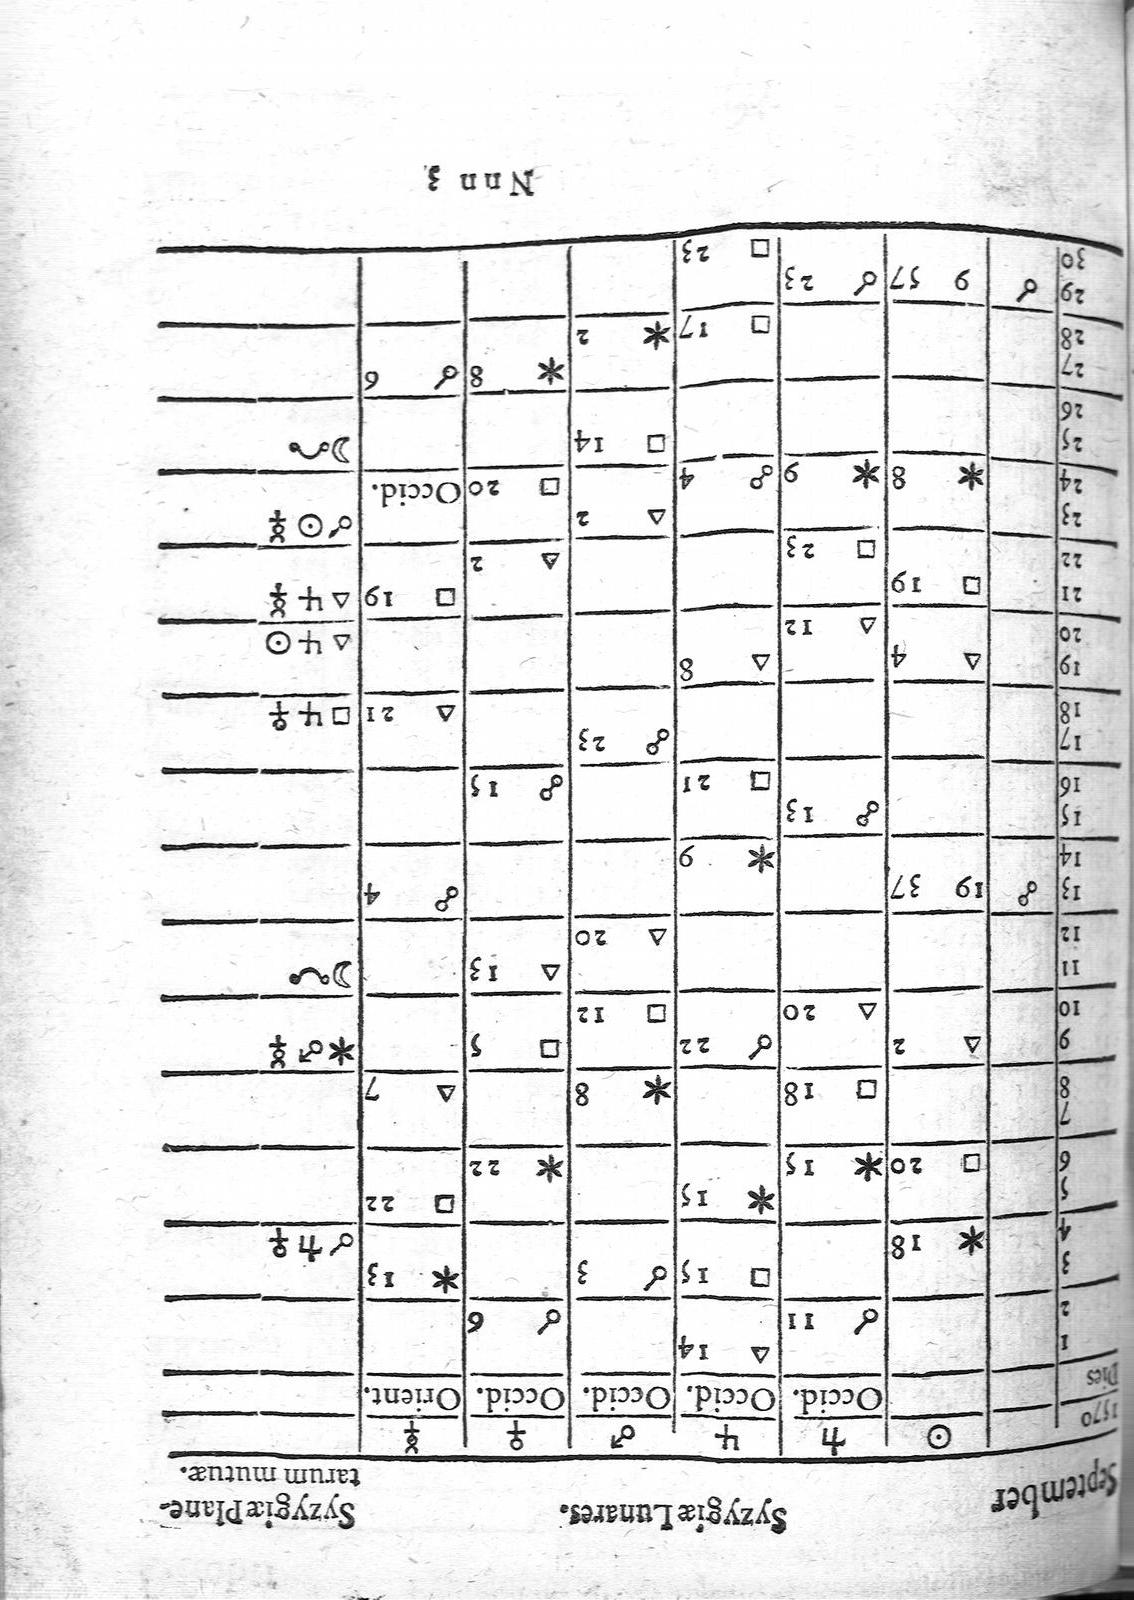 September Syzygiæ Lunares. Syzygiæ Plane-
tarum mutuæ.
1570 ☉ ♄ ♃ ♂ ♀ ☿
Dies Occid. Occid. Occid. Occid. Orient.
1 △ 14
2 ☌ 11 ☌ 9
3 □ 15 ☌ 3 ✶ 13
4 ✶ 18 ☌ ♄ ♀
5 ✶ 15 □ 22
6 □ 20 ✶ 15 ✶ 22
7
8 □ 18 ✶ 8 △ 7
9 △ 2 ☌ 22 □ 5 ✶ ♂ ☿
10 △ 20 □ 12
11 △ 13 ☽ ☋
12 △ 20
13 ☍ 19 37 ☍ 4
14 ✶ 9
15 ☍ 13
16 □ 21 ☍ 15
17 ☍ 23
18 △ 21 □ ♃ ♀
19 △ 4 △ 8
20 △ 12 △ ♃ ☉
21 □ 19 □ 19 △ ♃ ☿
22 □ 23 △ 2
23 △ 2 ☌ ☉ ☿
24 ✶ 8 ✶ 9 ☍ 4 □ 20 Occid.
25 □ 14 ☽ ☋
26
27 ✶ 8 ☌ 9
28 □ 17 ✶ 2
29 ☌ 9 57 ☌ 23
30 □ 23
Nnn 3